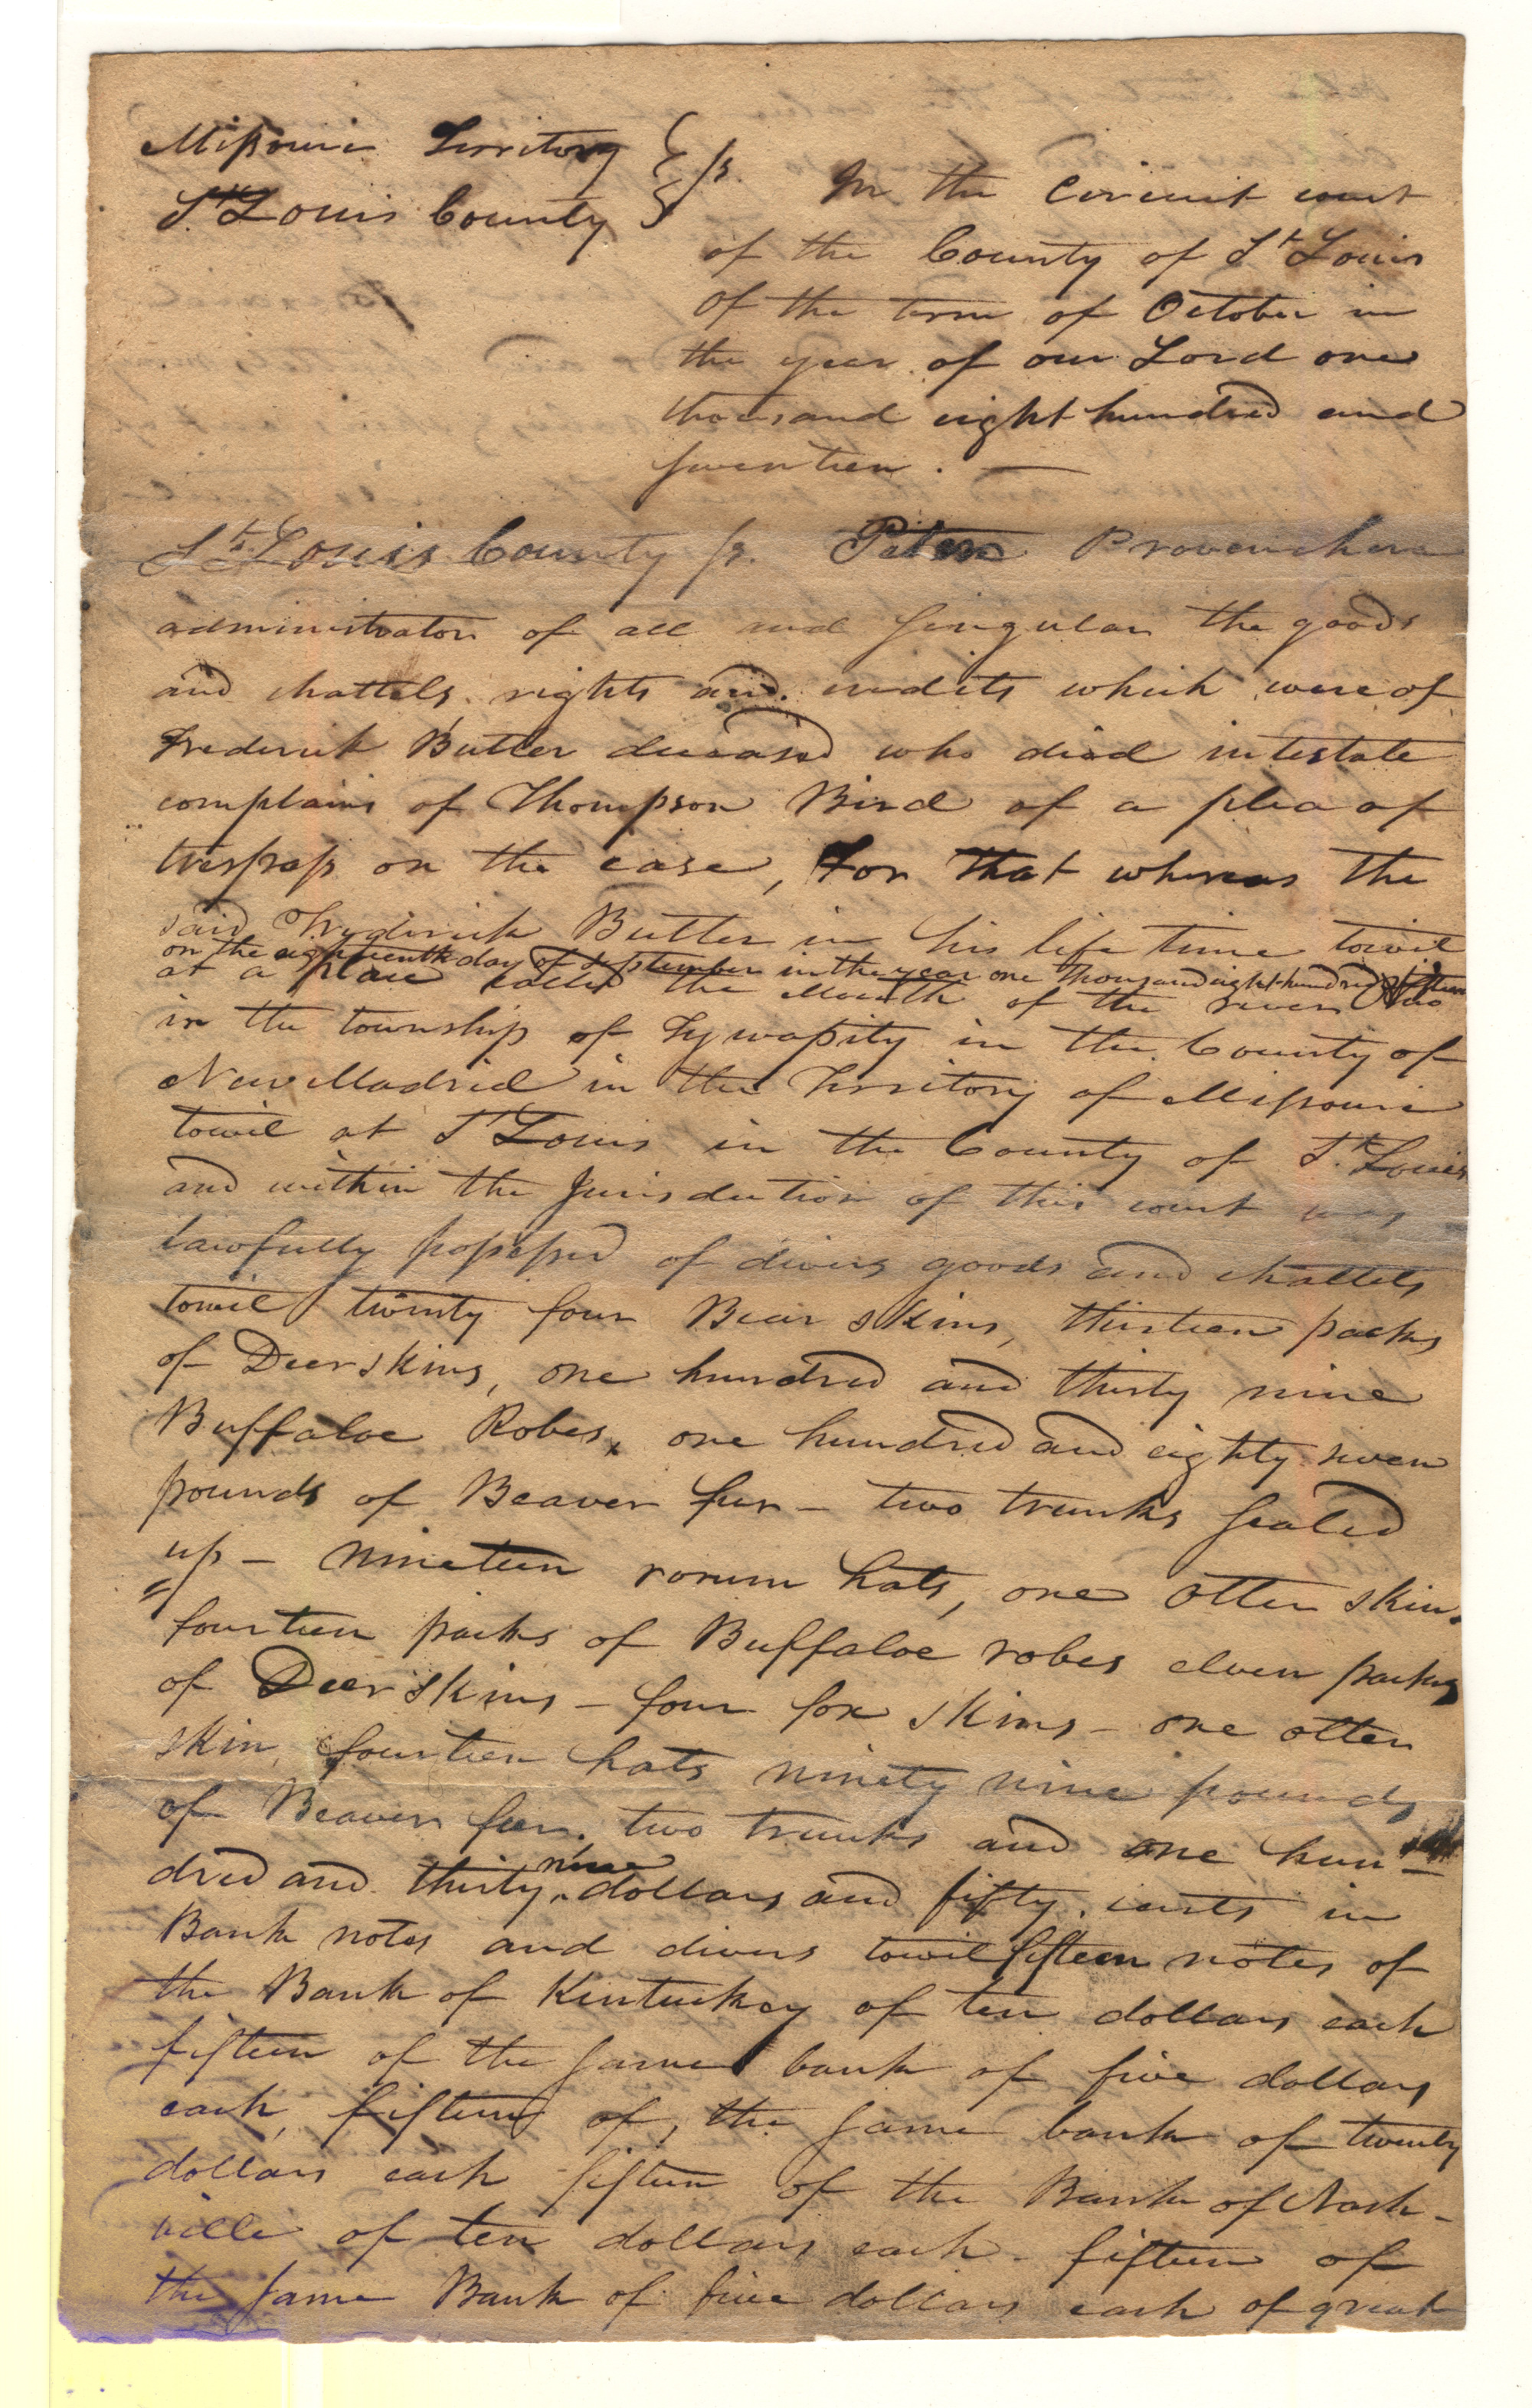 Missouri Territory } ss.
St. Louis County }
In the Circuit court
of the County of St Louis
of the term of October in
the year of our Lord one
thousand eight hundred and
seventeen. —
St. Louis County ss. Peter Provenchere
administrator of all and singular the goods
and chattels rights and credits which were of
Frederick Butler deceased who died intestate
complains of Thompson Bird of a plea of
trespass on the case, For that whereas the
said Frederick Butler in his life time towit
on the eighteenth day of september in the year one thousand eight hundred & fifteen
at a place called the Mouth of the river Ohio
in the township of Tywapity in the County of
New Madrid in the Territory of Missouri
towit at St Louis in the County of St. Louis
and within the Jurisdiction of this court was
lawfully possessed of divers goods and chattels
towit twenty four Bear skins, thirteen packs
of Deer skins, one hundred and thirty nine
Buffaloe Robes, one hundred and eighty seven
pounds of Beaver fur – two trunks sealed
up – nineteen rorum hats, one otter skin.
fourteen packs of Buffaloe robes eleven packs
of Deer skins – four fox skins – one otter
skin, fourteen hats ninety nine pounds
of Beaver fur, two trunks and one hun-
dred and thirty nine dollars and fifty cents in
Bank notes and divers towit fifteen notes of
the Bank of Kintuckey of ten dollars each
fifteen of the same bank of five dollars
each, fifteen of the same bank of twenty
dollars each fifteen of the Bank of Nash-
ville of ten dollars each – fifteen of
the same Bank of five dollars each of great